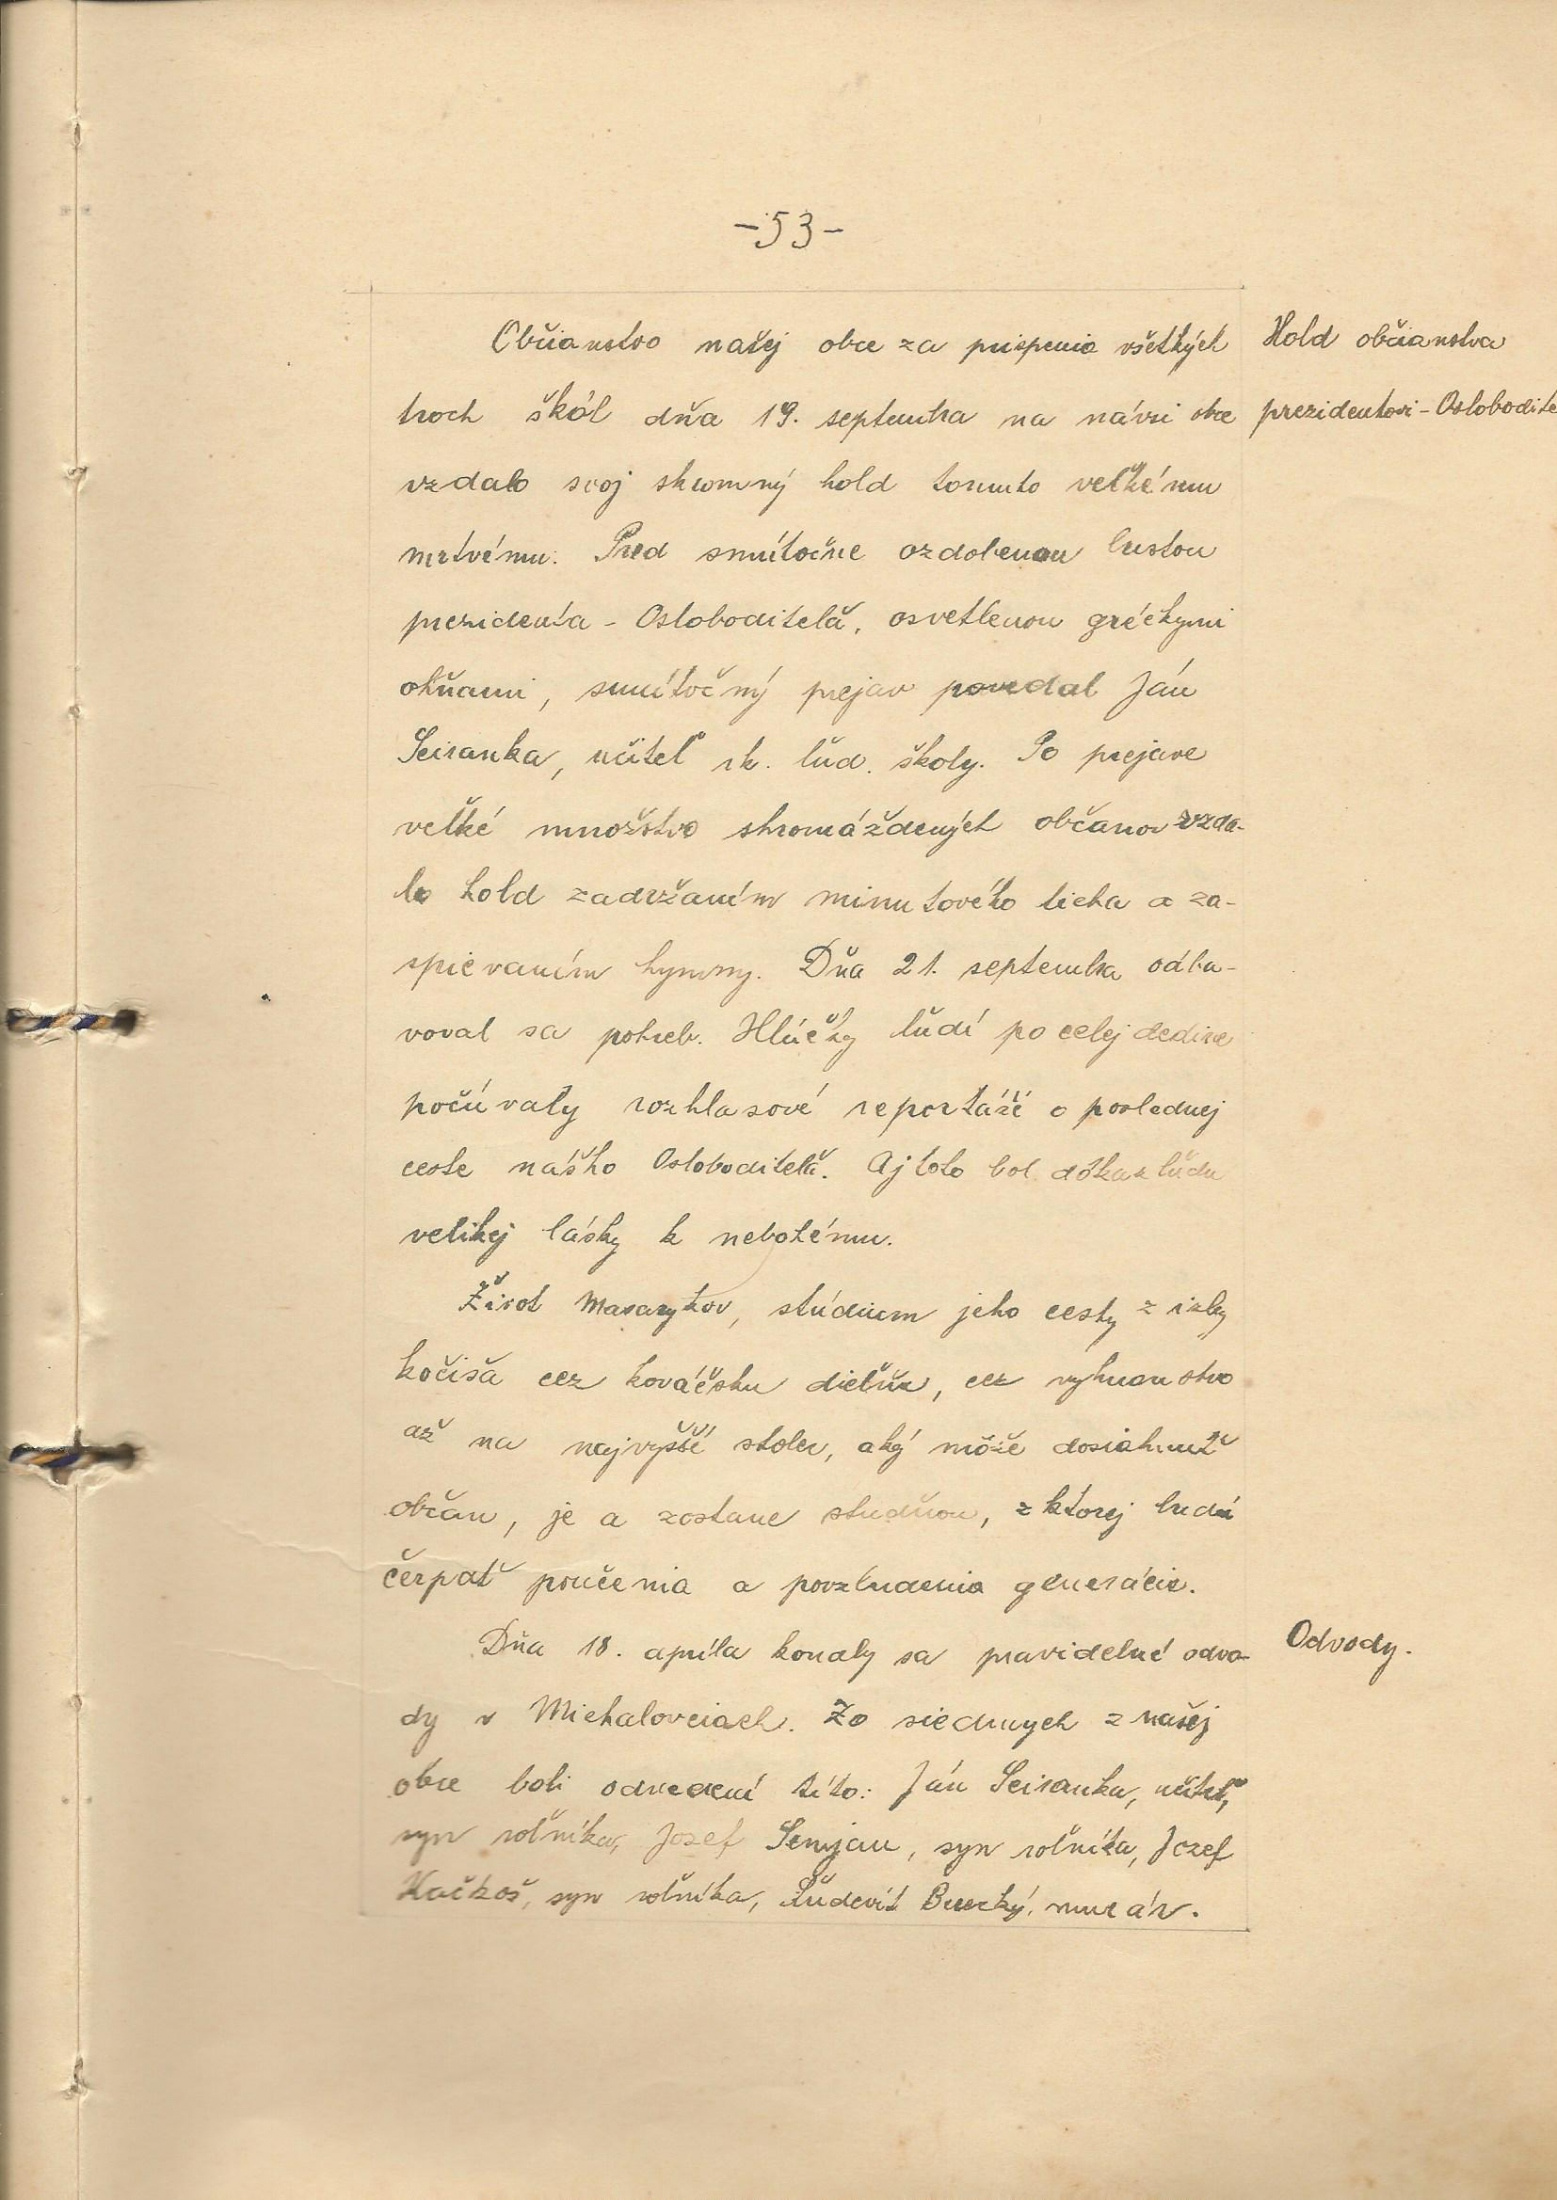 -53-
Občianstvo našej obce za prispenia všetkých
troch škôl dňa 19. septembra na návsi obce
vzdalo svoj skromný hold tomuto veľkému
mŕtvému. Pred smútočne ozdobenou bustou
prezidenta - Osloboditeľa, osvetlenou gréckymi
ohňami, smútočný prejav povedal Ján
Seiranka, učiteľ rk. ľud. školy. Po prejave
veľké množstvo shromáždených občanov vzda-
lo hold zadržaním minutového ticha a za-
spievaním hymny. Dňa 21. septembra odbu-
voval sa pohreb. Hlúčky ľudí po celej dedine
počúvaly rozhlasové reportáže o poslednej
ceste nášho Osloboditeľa. Aj toto bol dôkaz ľudu
velikej lásky k nebohému.
Život Masarykov, stúdium jeho cesty z izby
kočiša cez kováčsku dielňu, cez vyhnanstvo
až na najvyšší stolec, aký môže dosiahnuť
občan, je a zostane studňou, z ktorej budú
čerpať poučenia a povzbudenia generácie.
Dňa 18. apríla konaly sa pravidelné odvo-
dy v Michalovciach. Zo siedmych z našej
obce boli odvedení títo: Ján Seiranka, učiteľ,
syn roľníka, Jozef Semjan, syn roľníka, Jozef
Kačkoš, syn roľníka, Ľudevít murár.
Hold občianstva
prezidentovi - Oslobodite
Odvody.